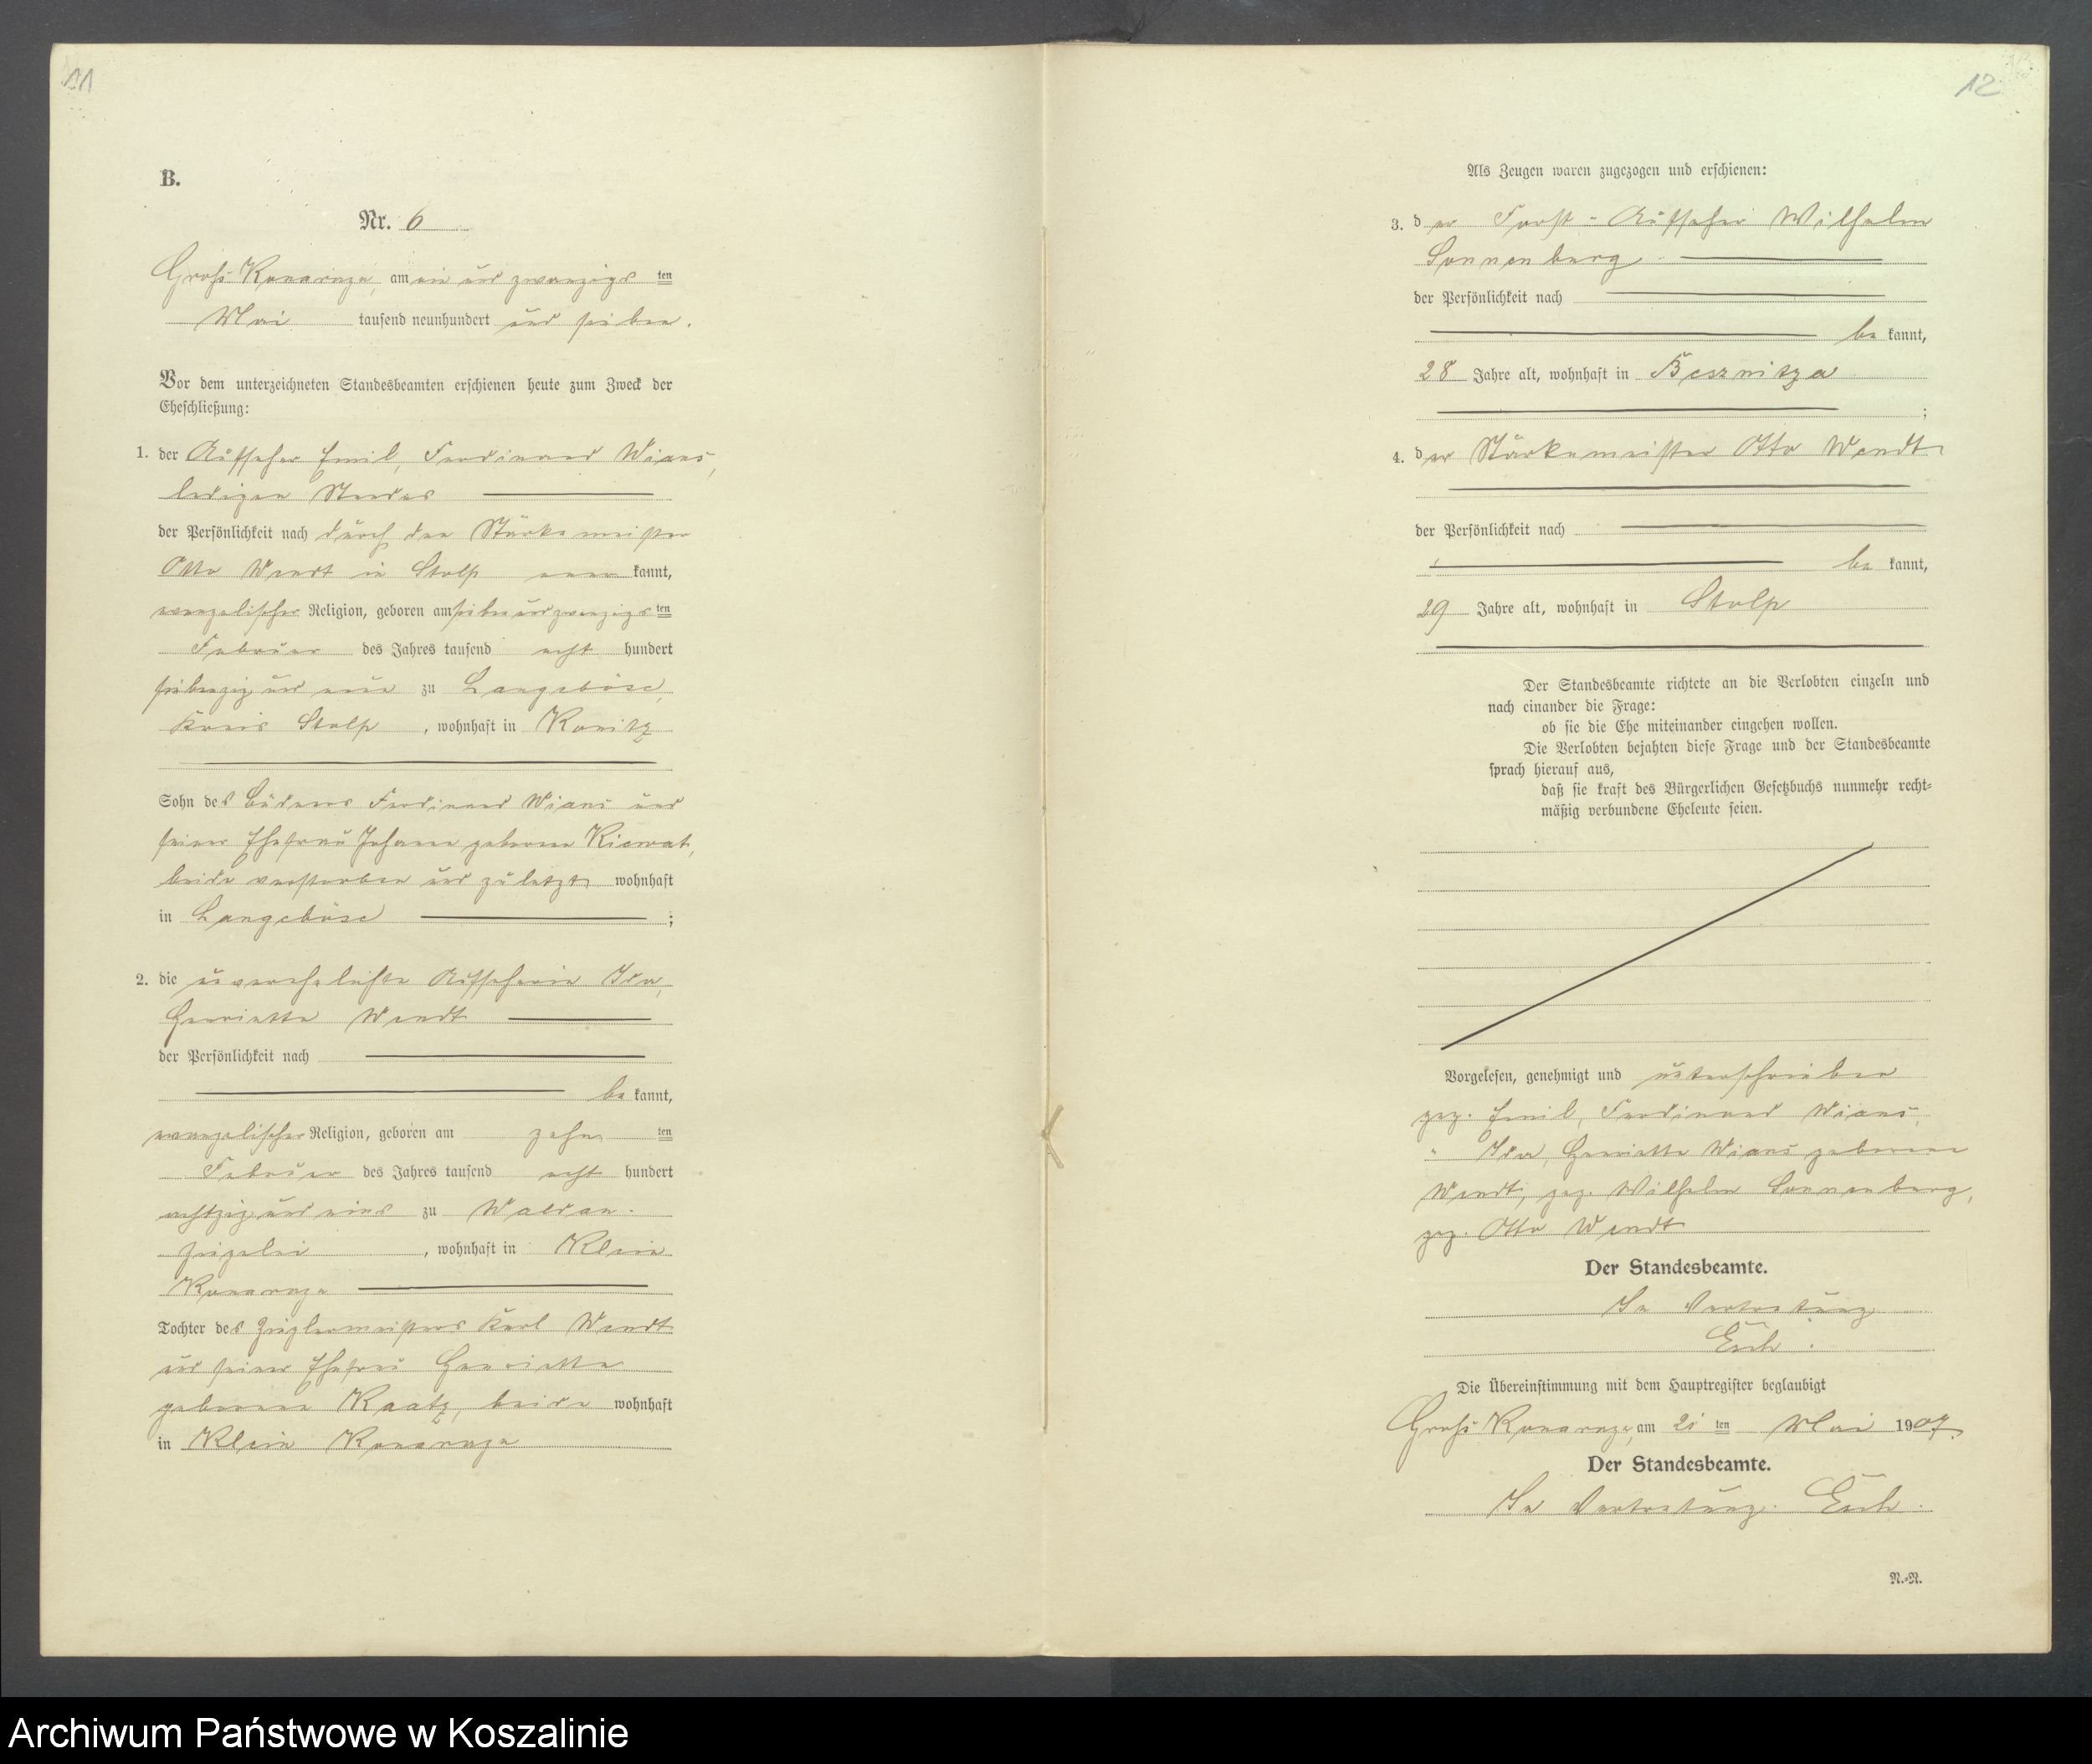 11
B.
Nr. 6
Groß Konarzyn, am ein und zwanzigs ten
Mai tausend neunhundert und sieben.
Vor dem unterzeichneten Standesbeamten erschienen heute zum Zweck der
Eheschließung:
1. der Aufseher Emil, Ferdinand
ledigen Standes
der Persönlichkeit nach durch den Stärkemeister
Otto Wendt in Stolp aner kannt,
evangelischer Religion, geboren am sieben und zwanzigs ten
Februar des Jahres tausend acht hundert
siebenzig und neun zu Langeböse,
Kreis Stolp, wohnhaft in Konitz
Sohn des Büdners Ferdinand und
seiner Ehefrau Johann geborene
beide verstorben und zuletzt wohnhaft
in Langeböse ;
2. die unverehelichte Aufseherin Ida,
Henriette Wendt
der Persönlichkeit nach
be kannt,
evangelischer Religion, geboren am zehn ten
Februar des Jahres tausend acht hundert
achtzig und eins zu
Ziegelei, wohnhaft in Klein
Konarzyn
Tochter des Zieglermeisters Karl Wendt
und seiner Ehefrau Henriette
geborene Raatz, beide wohnhaft
in Klein Konarzyn
12
Als Zeugen waren zugezogen und erschienen:
3. der Forst-Aufseher Wilhelm
Sonnenberg
der Persönlichkeit nach
be kannt,
28 Jahre alt, wohnhaft in
;
4. der Stärkemeister Otto Wendt
der Persönlichkeit nach
be kannt,
29 Jahre alt, wohnhaft in Stolp
Der Standesbeamte richtete an die Verlobten einzeln und
nach einander die Frage:
ob sie die Ehe miteinander eingehen wollen.
Die Verlobten bejahten diese Frage und der Standesbeamte
sprach hierauf aus,
daß sie kraft des Bürgerlichen Gesetzbuchs nunmehr recht=
mäßig verbundene Eheleute seien.
Vorgelesen, genehmigt und unterschrieben
gez. Emil, Ferdinand
" Ida, Henriette geborene
Wendt, gez. Wilhelm Sonnenberg,
gez. Otto Wendt
Der Standesbeamte.
In Vertretung
Die Übereinstimmung mit dem Hauptregister beglaubigt
Groß Konarzyn, am 21 ten Mai 1907.
Der Standesbeamte.
In Vertretung.
N.=N.
Archiwum Państwowe w Koszalinie